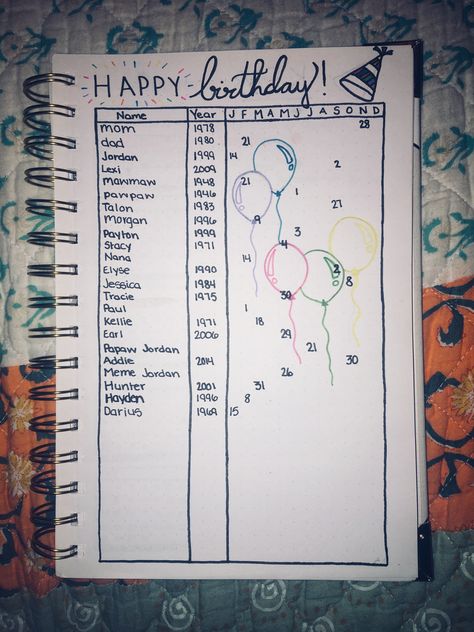 HAPPY birthday!
Name Year J F M A M J J A S O N D
mom 1978 28
dad 1980 21
Jordan 1999 14
Lexi 2009 2
mawmaw 1948 21
pawpaw 1946 1
Talon 1983 27
Morgan 1996 9
Payton 1999 3
Stacy 1971 4
Nana 14
Elyse 1990 2
Jessica 1984 8
Tracie 1975 30
Paul 1
Kellie 1971 18
Earl 2006 29
Papaw Jordan 21
Addie 2014 30
Meme Jordan 26
Hunter 2001 31
Hayden 1996 8
Darius 1969 15